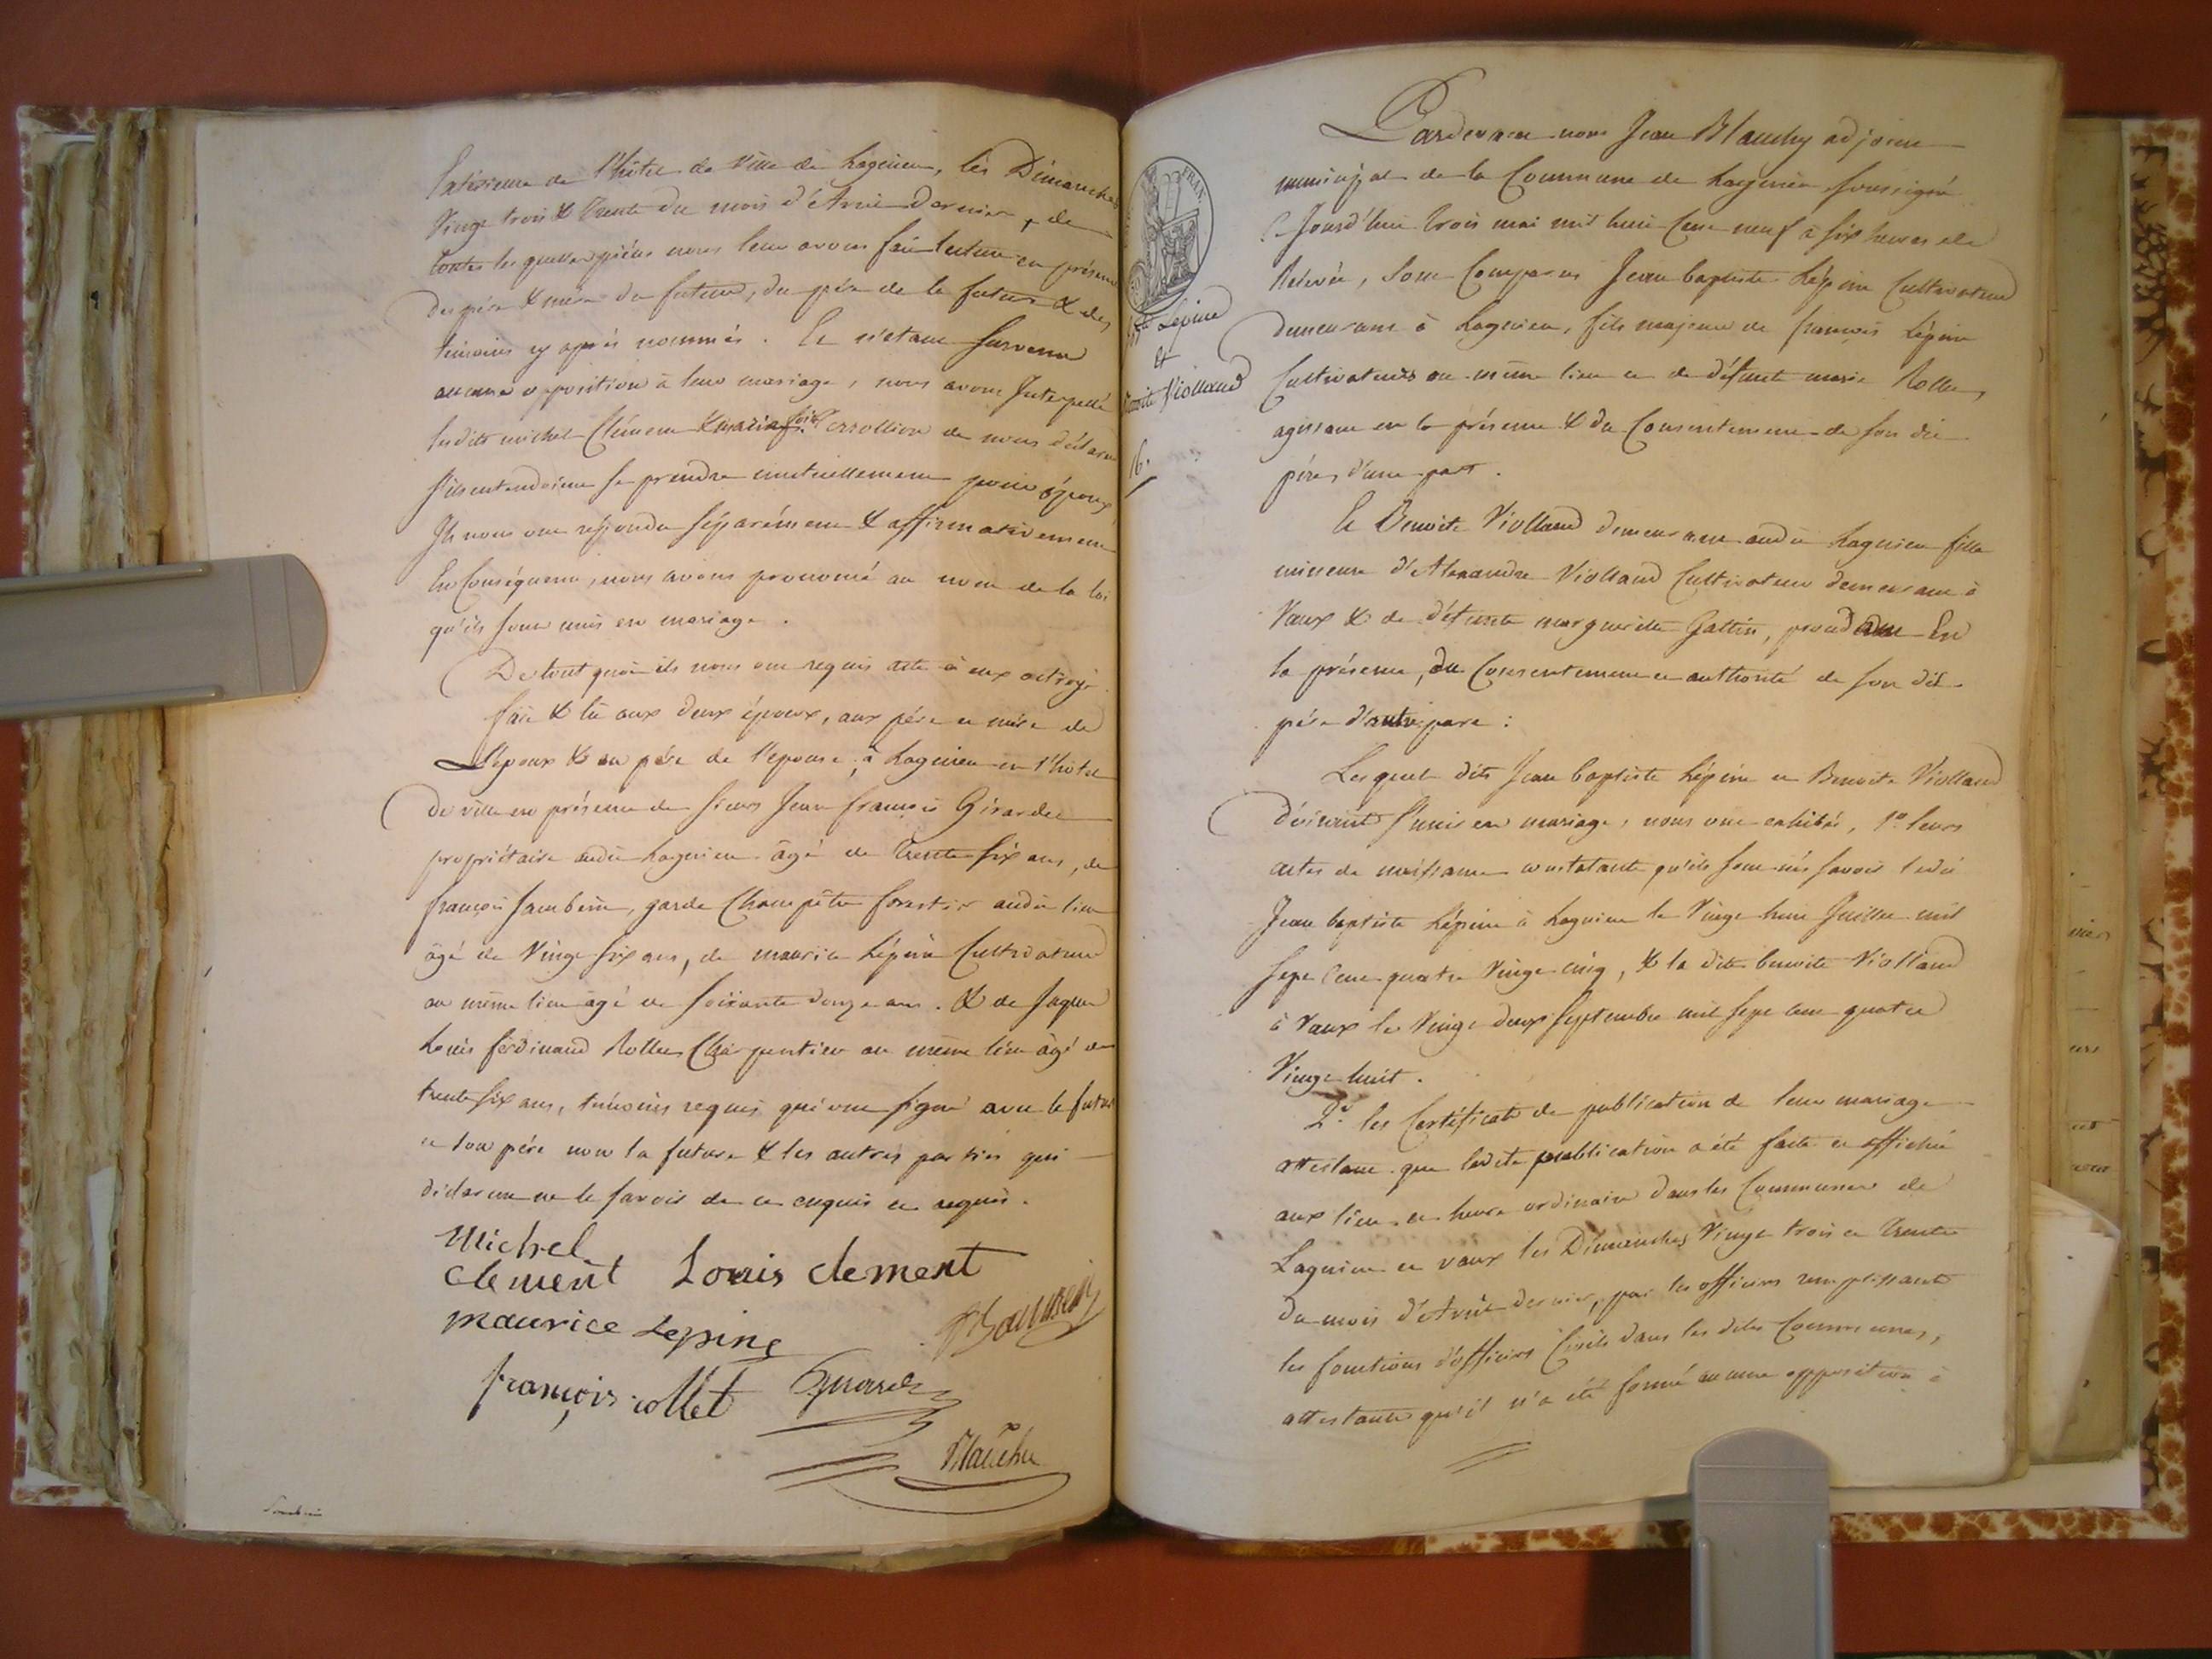 Extérieure de l'hôtel de Ville de Lagnieu, les Dimanches
Vingt trois & Trente du mois d'Avril dernier, de
toutes lesquelles pièces nous leur avons fait lecture en présence
des père & mère du futur, du père de la future & des
témoins cy après nommés. Et n'étant survenu
aucune opposition à leur mariage, nous avons Interpellé
lesdits michel Clément & maria de nous déclarer
s'ils entendoient se prendre mutuellement pour époux,
Ils nous ont répondu séparément & affirmativement
En Conséquence, nous avons prononcé au nom de la loi
qu'ils sont unis en mariage.
De tout quoi ils nous ont requis acte à eux octroyé.
fait & lu aux deux époux, aux père et mère de
L'époux & au père de l'epouse, à Lagnieu en l'hôtel
de ville en présence de sieurs Jean françois Girardet
propriétaire audit Lagnieu âgé de Trente six ans, de
françois Jambein, garde Champêtre forestier audit lieu
âgé de Vingt six ans, de maurice Lépine Cultivateur
au même lieu âgé de soixante douze ans. & de Jaque
Louis ferdinand Rollet Charpentier au même lieu âgé de
trente six ans, témoins requis qui ont signé avec le futur
et son père non la future & les autres parties qui
déclarent ne le savoir de ce enquis et requis.
Michel
Clement Louis clement
maurice Lepine
françois collet Girardet
Blanchy
Pardevant nous Jean Blanchy adjoint
municipal de la Commune de Lagnieu soussigné
Cejourd'hui trois mai mil huit Cent neuf à six heures de
Relevée, sont Comparus Jean baptiste Lépine Cultivateur
demeurant à Lagnieu, fils majeur de françois Lépine
Cultivateurs au même lieu et de défunte marie Rollet,
agissant en la présence & du Consentement de son dit
père, d'une part.
Et Benoite Violland demeurant audit Lagnieu fille
mineure d'Alexandre Violland Cultivateur demeurant à
Vaux & de défunte marguerite Gattin, procédant En
la présence, du Consentement et authorité de son dit
père d'autre part:
Lesquels dits Jean baptiste Lépine et Benoite Violland
désirant s'unir en mariage, nous ont exhibé, 1º leurs
actes de naissance constatants qu'ils sont nés savoir ledit
Jean baptiste Lépine à Lagnieu le Vingt huit Juillet mil
sept Cent quatre Vingt cinq, & la dite benoite Violland
à Vaux le Vingt deux septembre mil sept cent quatre
Vingt huit.
2º les Certificats de publication de leur mariage
attestant que ladite publication a été faite et affichée
aux lieu et heure ordinaire dans les Communes de
Lagnieu et vaux les Dimanches Vingt trois et trente
du mois d'Avril dernier, par les officiers remplissants
les fonctions d'officiers Civils dans les dites Communes,
attestants qu'il n'a été formé aucune opposition à
FRAN.
Lépine
et
Benoite Violland
16.